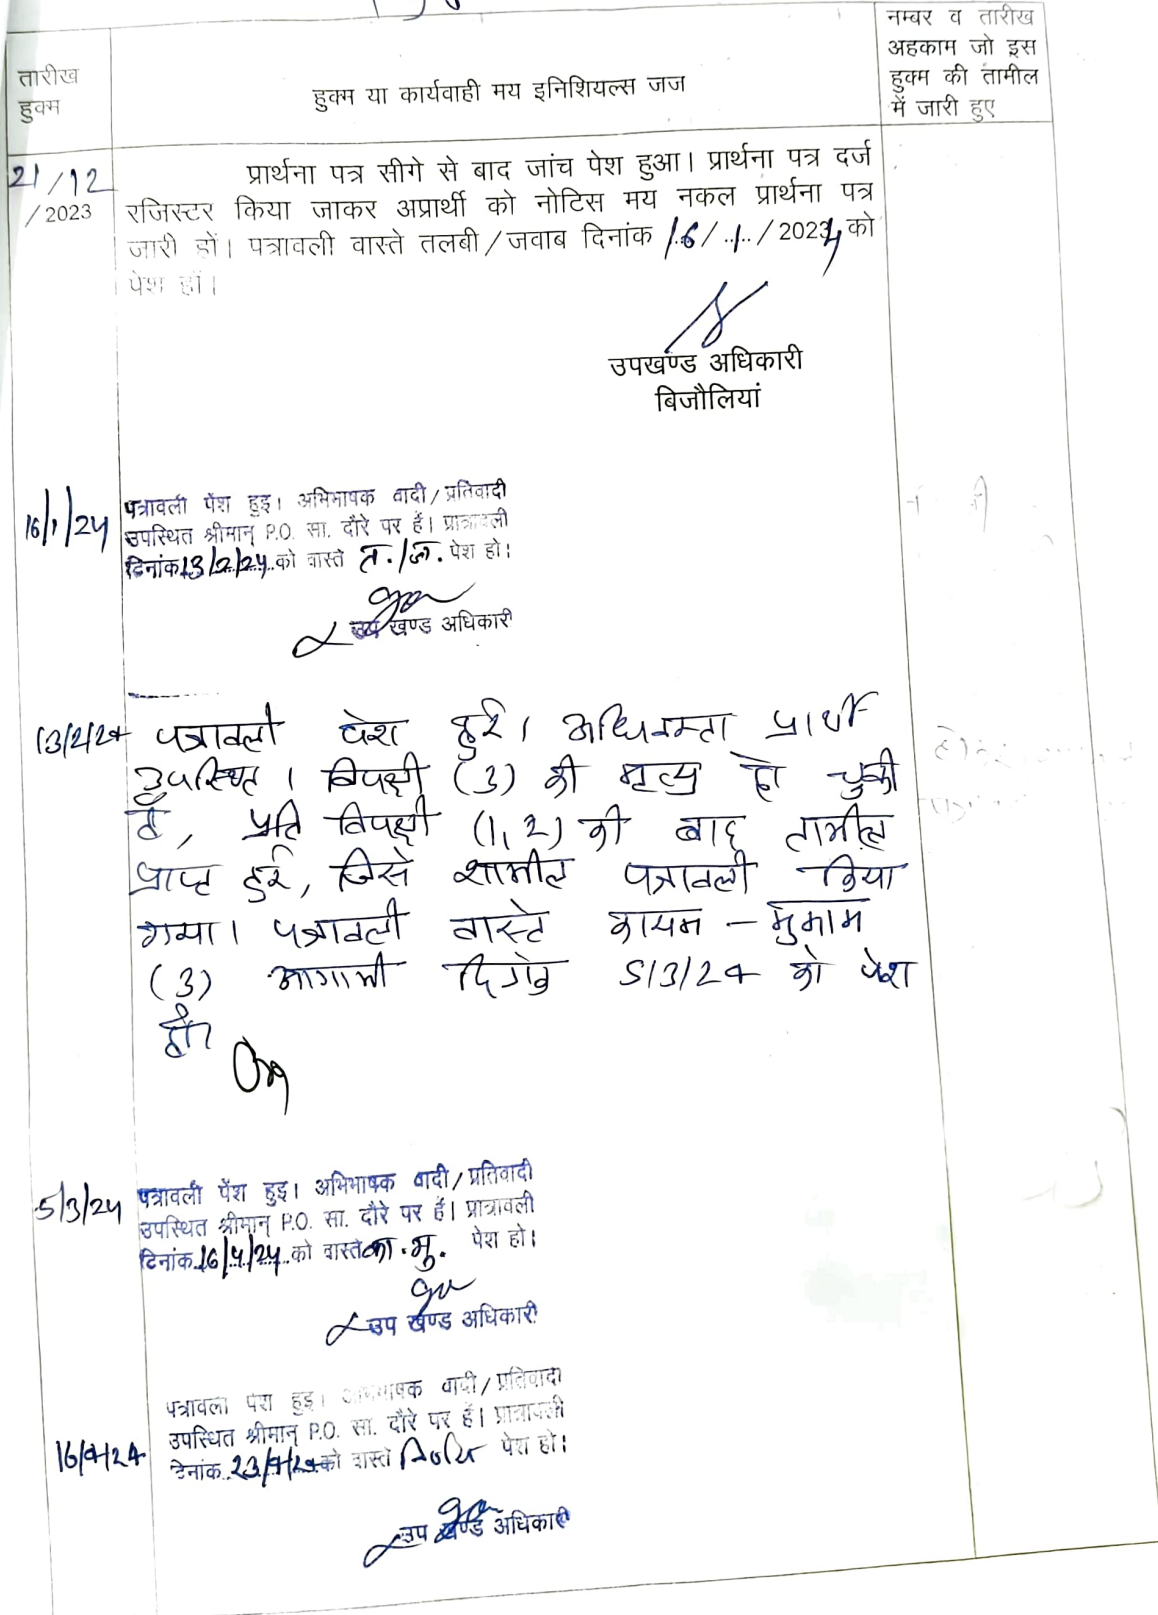 तारीख
हुक्म
हुक्म या कार्यवाही मय इनिशियल्स जज
नम्बर व तारीख
अहकाम जो इस
हुक्म की तामील
में जारी हुए
21/12
/2023
प्रार्थना पत्र सीगे से बाद जांच पेश हुआ। प्रार्थना पत्र दर्ज
रजिस्टर किया जाकर अप्रार्थी को नोटिस मय नकल प्रार्थना पत्र
जारी हों। पत्रावली वास्ते तलबी/जवाब दिनांक 16/.1./2024 को
पेश हों।
उपखण्ड अधिकारी
बिजौलियां
16/1/24
पत्रावली पेंश हुइ। अभिभाषक वादी/प्रतिवादी
उपस्थित श्रीमान् P.O. सा. दौरे पर हैं। प्रात्रावली
दिनांक 13/2/24 को वास्ते त./ज. पेश हो।
उप खण्ड अधिकारी
13/2/24
पत्रावली पेश हुई। अधिवक्ता प्रार्थी
उपस्थित। विपक्षी (3) की मृत्यु हो चुकी
है, प्रति विपक्षी (1,2) की बाद तामील
प्राप्त हुई, जिसे शामील पत्रावली किया
गया। पत्रावली वास्ते कायम - मुकाम
(3) आगामी 5/3/24 को पेश
हो।
5/3/24
पत्रावली पेंश हुइ। अभिभाषक वादी/प्रतिवादी
उपस्थित श्रीमान् P.O. सा. दौरे पर हैं। प्रात्रावली
दिनांक 16/4/24 को वास्ते का.मु. पेश हो।
उप खण्ड अधिकारी
16/4/24
पत्रावली पेश हुइ। अभिभाषक वादी/प्रतिवादी
उपस्थित श्रीमान् P.O. सा. दौरे पर हैं। प्रात्रावली
दिनांक 23/4/24 को वास्ते पेश हो।
उप खण्ड अधिकारी